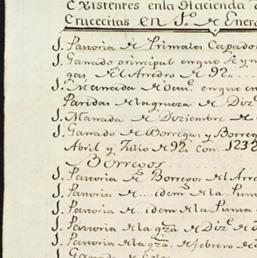 Existentes enla Hacienda d
Crucecitas en 1.º de Enero
1. Panoria de Primales Capados
1. Ganado principal enque
gas, el Arredro de 92
1. Manada de enque en
Paridas de la de Diz.
1. Manada de Diziembre de
1. Ganado de Borregas y Borreg
Abril y Julio de 92. con. 1232
Borregos
1. Panoria de Borregos de Arre
1. Panoria de idem de la Puna
1. Panoria de idem de la Puna
1. Panoria de la gza de Diz.e de
1. Panoria de la gza. de febrero de
1. Ganado de